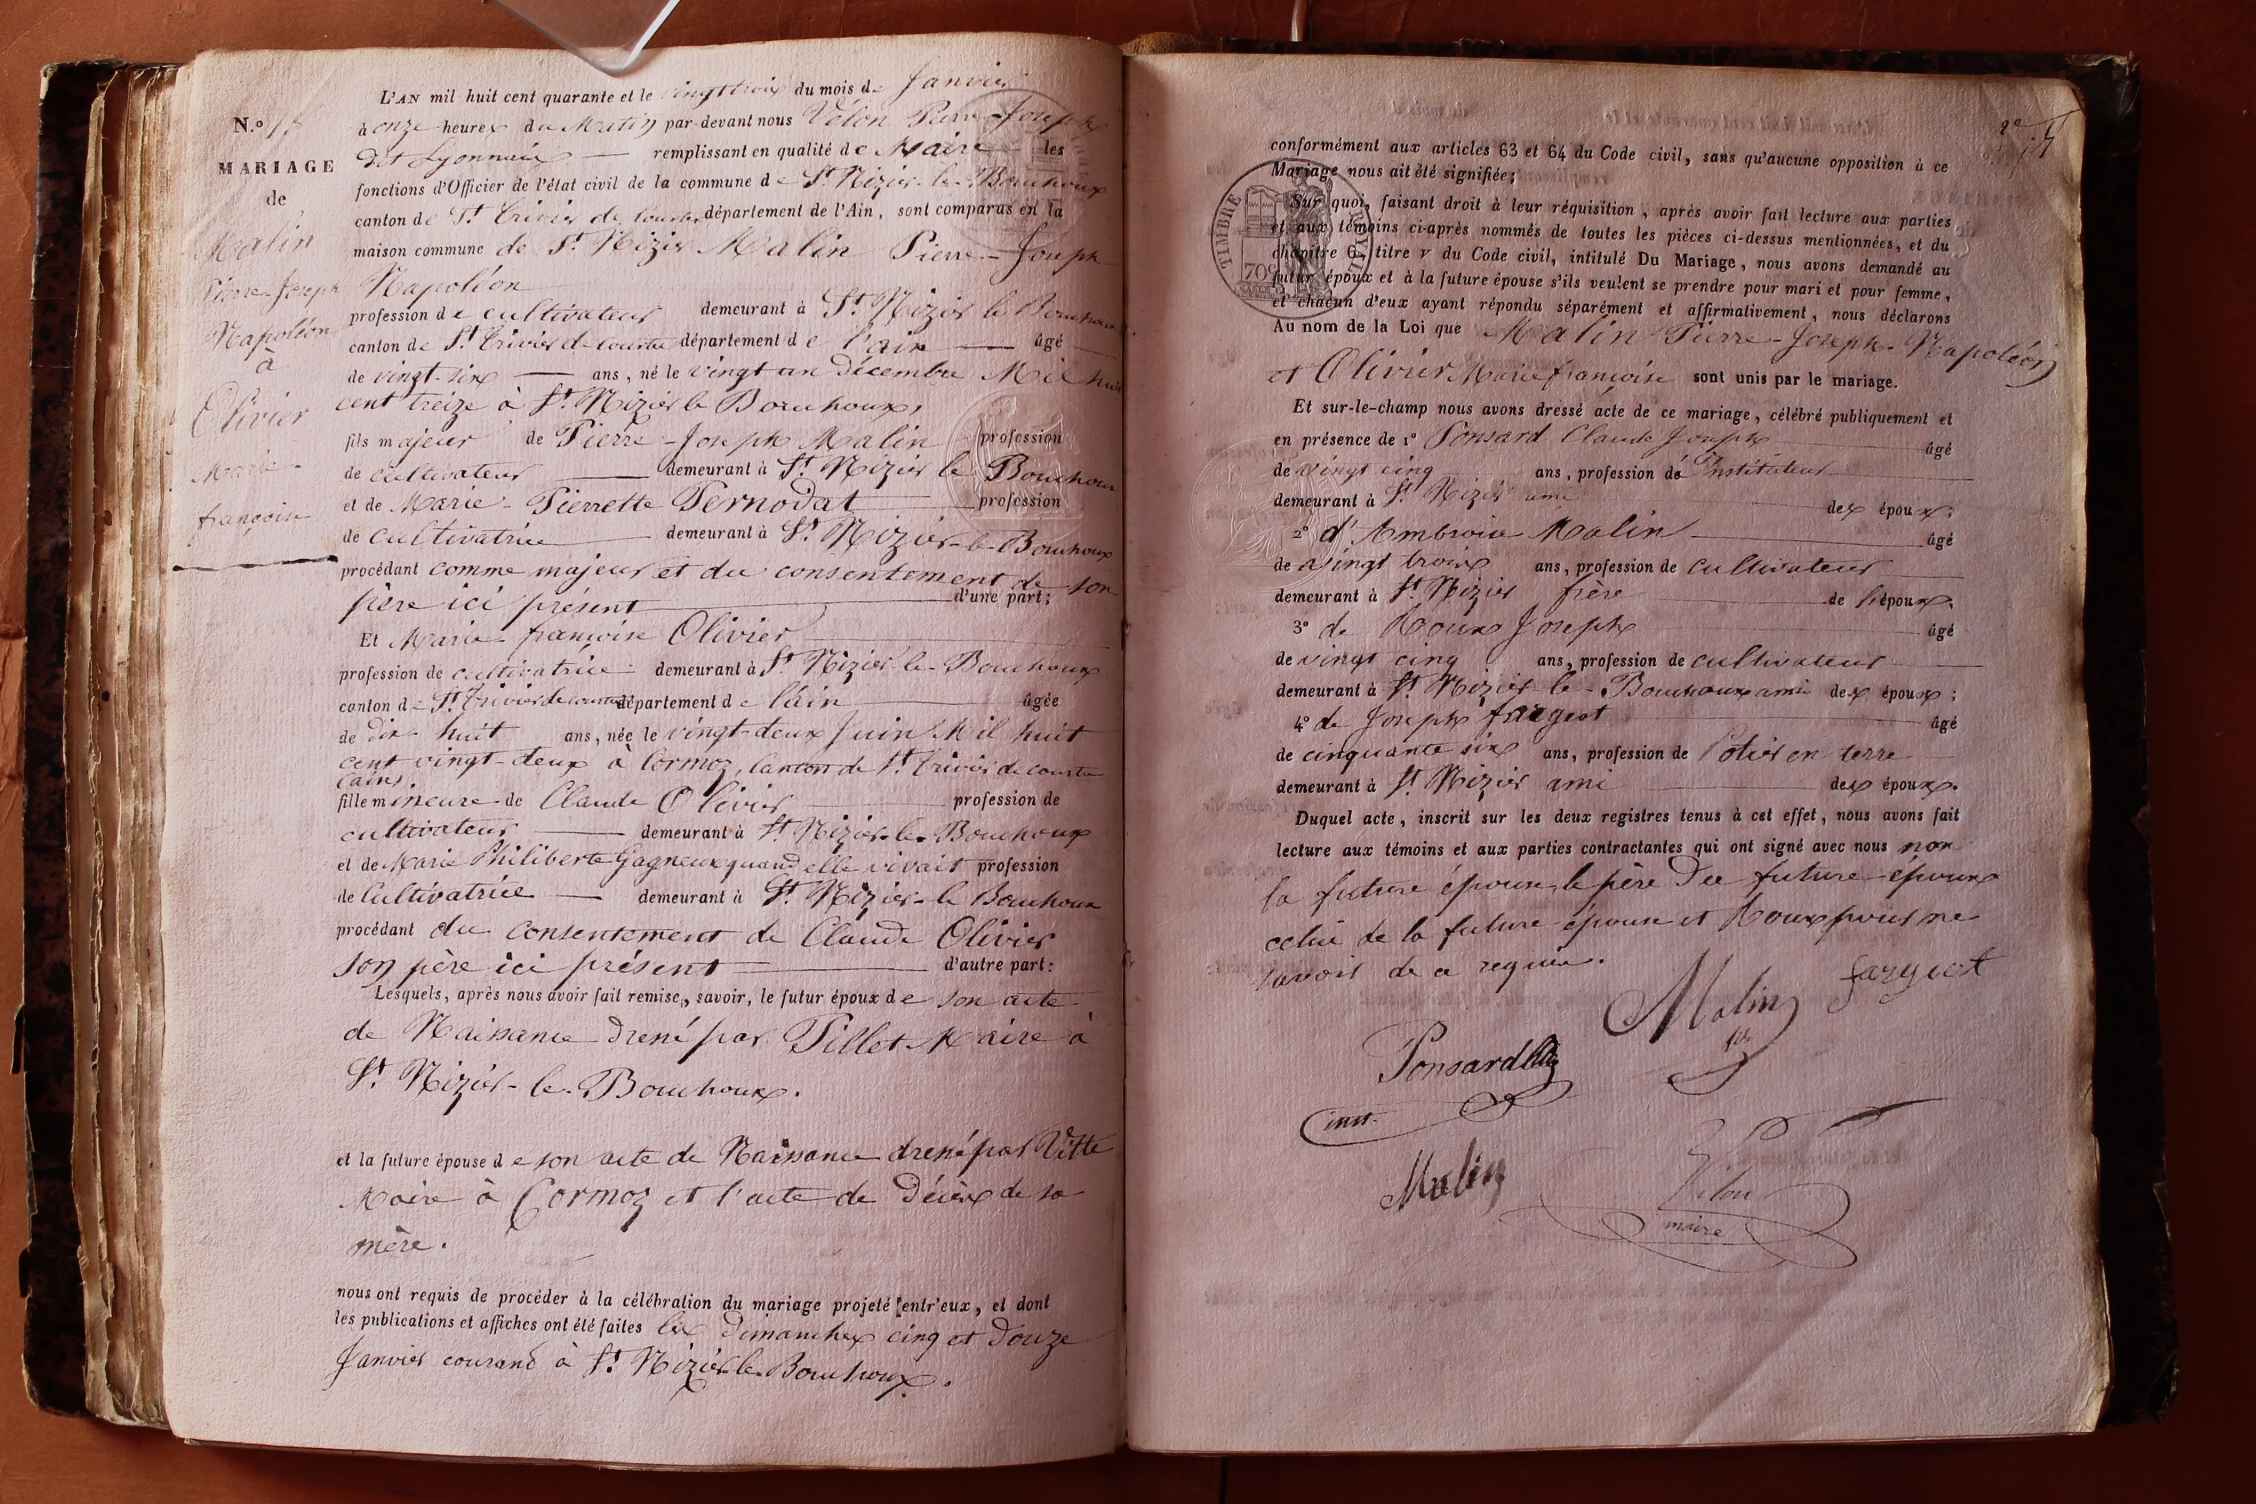 L'AN mil huit cent quarante et le vingt trois du mois de Janvier
N.°
à onze heures du Matin par-devant nous Vélon Pierre Joseph
MARIAGE
dit Lyonnais remplissant en qualité de Maire les
fonctions d'Officier de l'état civil de la commune de St Nizier-le-Bouchoux
de
canton de St Trivier de Courtes département de l'Ain, sont comparus en la
Malin
maison commune de St Nizier Malin Pierre-Joseph
Pierre-Joseph
Napoléon
profession de cultivateur demeurant à St Nizier le Bouchoux
Napoléon
canton de St Trivier de Courtes département de l'ain âgé
à
de vingt-six ans, né le vingt un décembre Mil huit
Olivier
cent treize à St Nizier le Bouchoux,
fils majeur de Pierre-Joseph Malin profession
Marie
de cultivateur demeurant à St Nizier le Bouchoux
et de Marie-Pierrette Pernodat profession
françoise
de cultivatrice demeurant à St Nizier-le-Bouchoux
procédant comme majeur et du consentement de son
père ici présent d'une part;
Et Marie françoise Olivier
profession de cultivatrice demeurant à St Nizier-le-Bouchoux
canton de St Trivier de courtes département de l'ain âgée
de dix-huit ans, née le vingt-deux Juin Mil huit
cent vingt-deux à Cormoz, Canton de St Trivier de courtes
(ain),
fille mineure de Claude Olivier profession de
cultivateur demeurant à St Nizier-le-Bouchoux
et de Marie Philiberte Gagneux quand elle vivait profession
de Cultivatrice demeurant à St Nizier-le Bouchoux
procédant du consentement de Claude Olivier
son père ici présent d'autre part:
Lesquels, après nous avoir fait remise, savoir, le futur époux de son acte
de Naissance dressé par Pillet Maire à
St Nizier-le-Bouchoux.
et la future épouse de son acte de Naissance dressé par Vitte
Maire à Cormoz et l'acte de décès de sa
mère.
nous ont requis de procéder à la célébration du mariage projeté entr'eux, et dont
les publications et affiches ont été faites les dimanches cinq et douze
Janvier courand à St Nizier-le-Bouchoux.
conformément aux articles 63 et 64 du Code civil, sans qu'aucune opposition à ce
Mariage nous ait été signifiée;
TIMBRE ROYAL
70c
Sur quoi, faisant droit à leur réquisition, après avoir fait lecture aux parties
et aux témoins ci-après nommés de toutes les pièces ci-dessus mentionnées, et du
chapitre 6, titre v du Code civil, intitulé Du Mariage, nous avons demandé au
futur époux et à la future épouse s'ils veulent se prendre pour mari et pour femme,
et chacun d'eux ayant répondu séparément et affirmativement, nous déclarons
Au nom de la Loi que Malin Pierre-Joseph-Napoléon
et Olivier Marie françoise sont unis par le mariage.
Et sur-le-champ nous avons dressé acte de ce mariage, célébré publiquement et
en présence de 1° Ponsard Claude Joseph âgé
de vingt cinq ans, profession de Instituteur
demeurant à St Nizier ami des époux;
2° d'Ambroise Malin âgé
de vingt trois ans, profession de cultivateur
demeurant à St Nizier frère de l'époux;
3° de Roux Joseph âgé
de vingt cinq ans, profession de cultivateur
demeurant à St Nizier-le-Bouchoux ami des époux;
4° de Joseph fargeot âgé
de cinquante six ans, profession de Potier en terre
demeurant à St Nizier ami des époux.
Duquel acte, inscrit sur les deux registres tenus à cet effet, nous avons fait
lecture aux témoins et aux parties contractantes qui ont signé avec nous non
la future épouse, le père du future époux
celui de la future épouse et Roux pour ne
savoir de ce requis.
Malin fargeot
fils
Ponsard
inst.
Malin
Vélon
maire